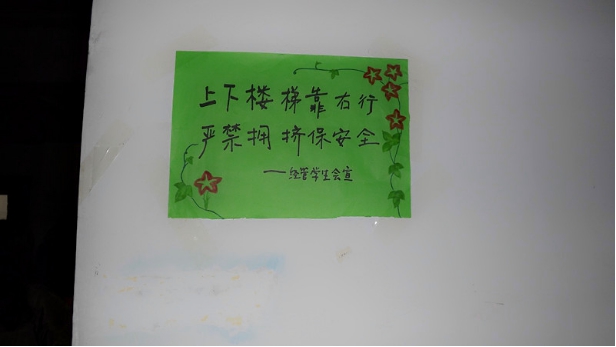 上下楼梯靠右行
严禁拥挤保安全
——经管学生会宣